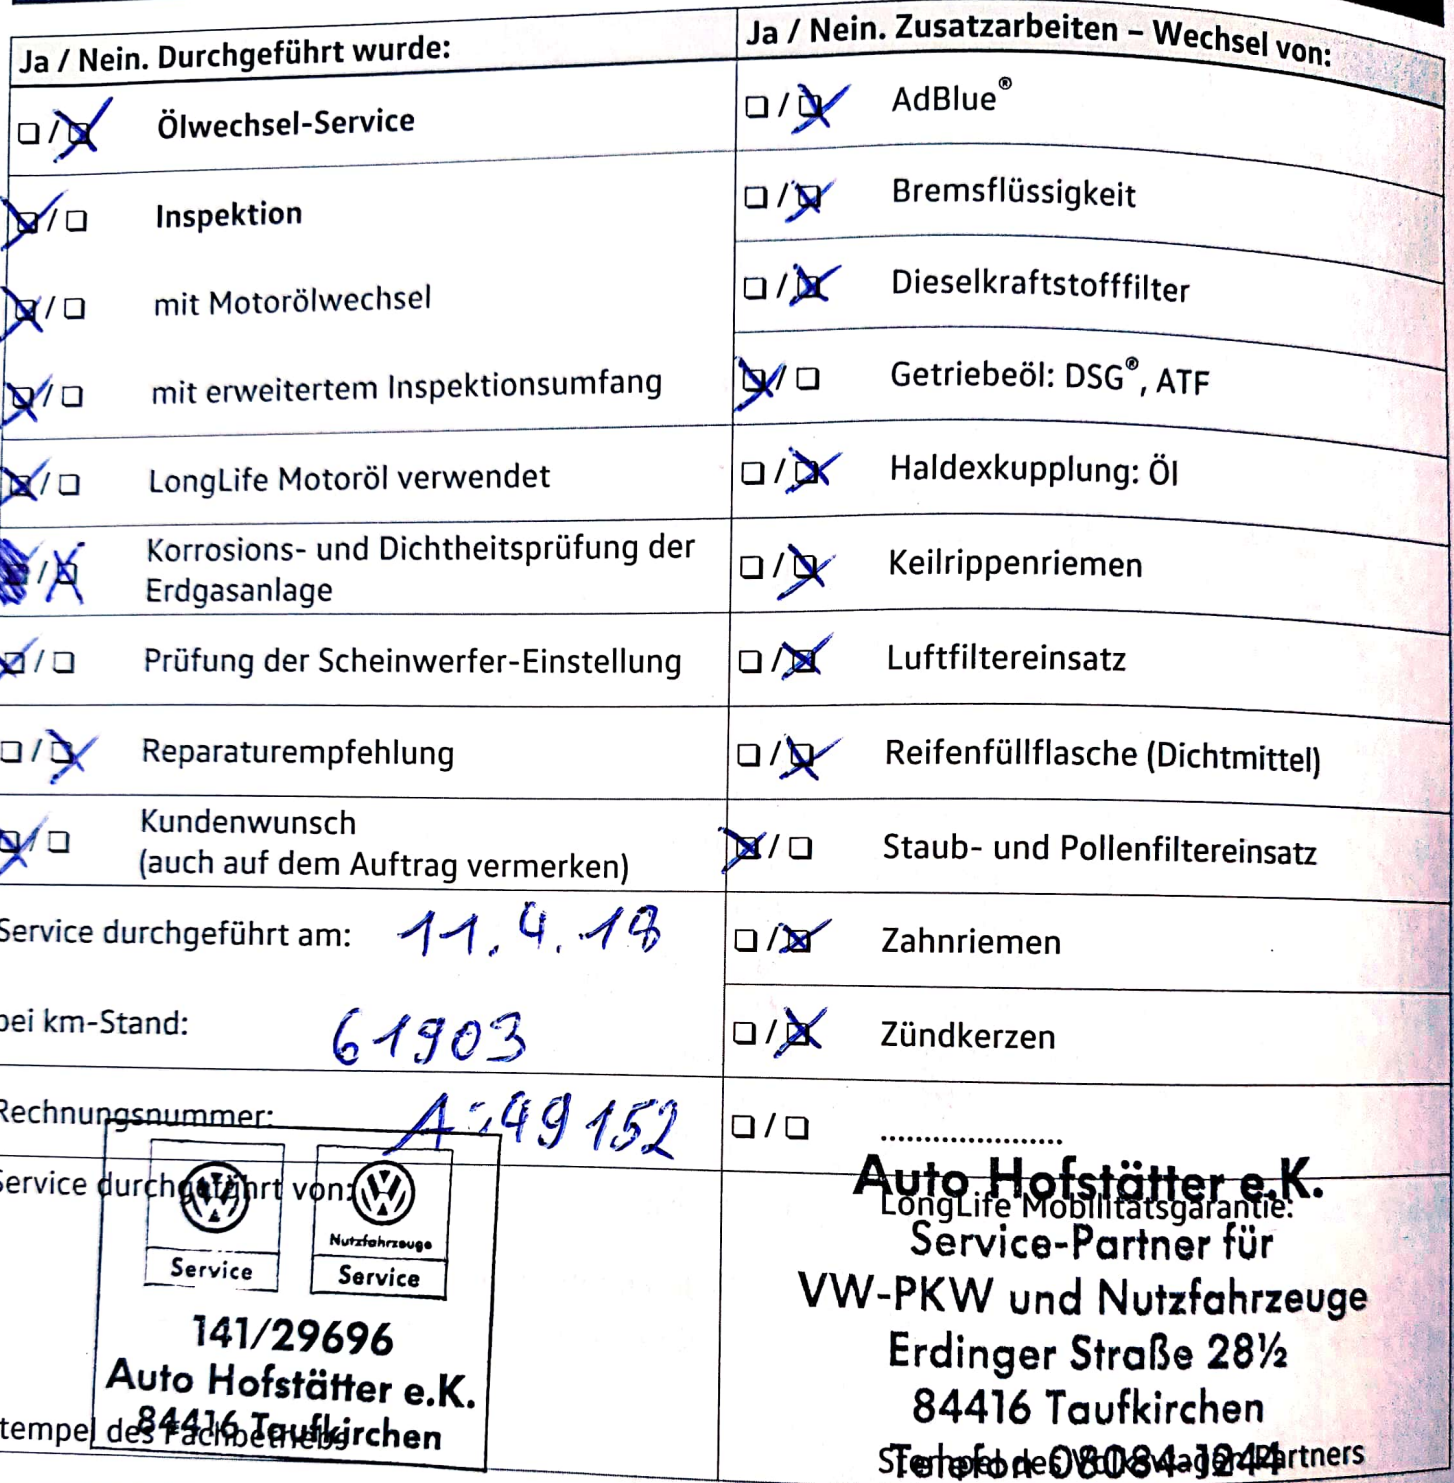 Ja / Nein. Durchgeführt wurde:
☐ / ☒ Ölwechsel-Service
☒ / ☐ Inspektion
☒ / ☐ mit Motorölwechsel
☒ / ☐ mit erweitertem Inspektionsumfang
☒ / ☐ LongLife Motoröl verwendet
/ ☒ Korrosions- und Dichtheitsprüfung der
Erdgasanlage
☒ / ☐ Prüfung der Scheinwerfer-Einstellung
☐ / ☒ Reparaturempfehlung
☒ / ☐ Kundenwunsch
(auch auf dem Auftrag vermerken)
Service durchgeführt am: 11.4.18
bei km-Stand: 61903
Rechnungsnummer: A:49152
Service durchgeführt von:
Nutzfahrzeuge
Service Service
141/29696
Auto Hofstätter e.K.
84416 Taufkirchen
Stempel des Fachbetriebs
Ja / Nein. Zusatzarbeiten – Wechsel von:
☐ / ☒ AdBlue®
☐ / ☒ Bremsflüssigkeit
☐ / ☒ Dieselkraftstofffilter
☒ / ☐ Getriebeöl: DSG®, ATF
☐ / ☒ Haldexkupplung: Öl
☐ / ☒ Keilrippenriemen
☐ / ☒ Luftfiltereinsatz
☐ / ☒ Reifenfüllflasche (Dichtmittel)
☒ / ☐ Staub- und Pollenfiltereinsatz
☐ / ☒ Zahnriemen
☐ / ☒ Zündkerzen
☐ / ☐ .....................
Auto Hofstätter e.K.
LongLife Mobilitätsgarantie:
Service-Partner für
VW-PKW und Nutzfahrzeuge
Erdinger Straße 28½
84416 Taufkirchen
Telefon 08084-1244
Stempel des Volkswagen Partners